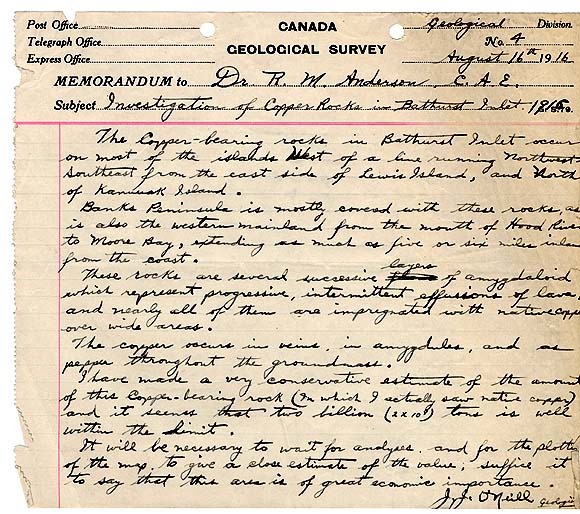 Post Office
CANADA
Geological Division.
Telegraph Office
GEOLOGICAL SURVEY
No. 4
Express Office
August 16th 1916
MEMORANDUM to Dr R. M Anderson, C.A.E.
Subject Investigation of Copper Rocks in Bathurst Inlet,
The Copper-bearing rocks in Bathurst Inlet occur
on most of the islands West of a line running Northwest-
Southeast from the east side of Lewis Island, and North
of Kanuyak Island.
Banks Peninsula is mostly covered with these rocks, as
is also the western mainland from the mouth of Hood River
to Moore Bay, extending as much as five or six miles inlan
from the coast.
These rocks are several successive layers of amygdaloid
which represent progressive, intermittent effusions of lava
and nearly all of them are impregnated with native coppe
over wide areas.
The copper occurs in veins, in amygdules, and as
pepper throughout the groundmass.
I have made a very conservative estimate of the amount
of this Copper-bearing rock (in which I actually saw native copper)
and it seems that two billion (2 x 10⁹) tons is well
within the limit.
It will be necessary to wait for analyses, and for the plottin
of the map, to give a close estimate of the value; suffice it
to say that this area is of great economic importance.
J.J. O'Neill